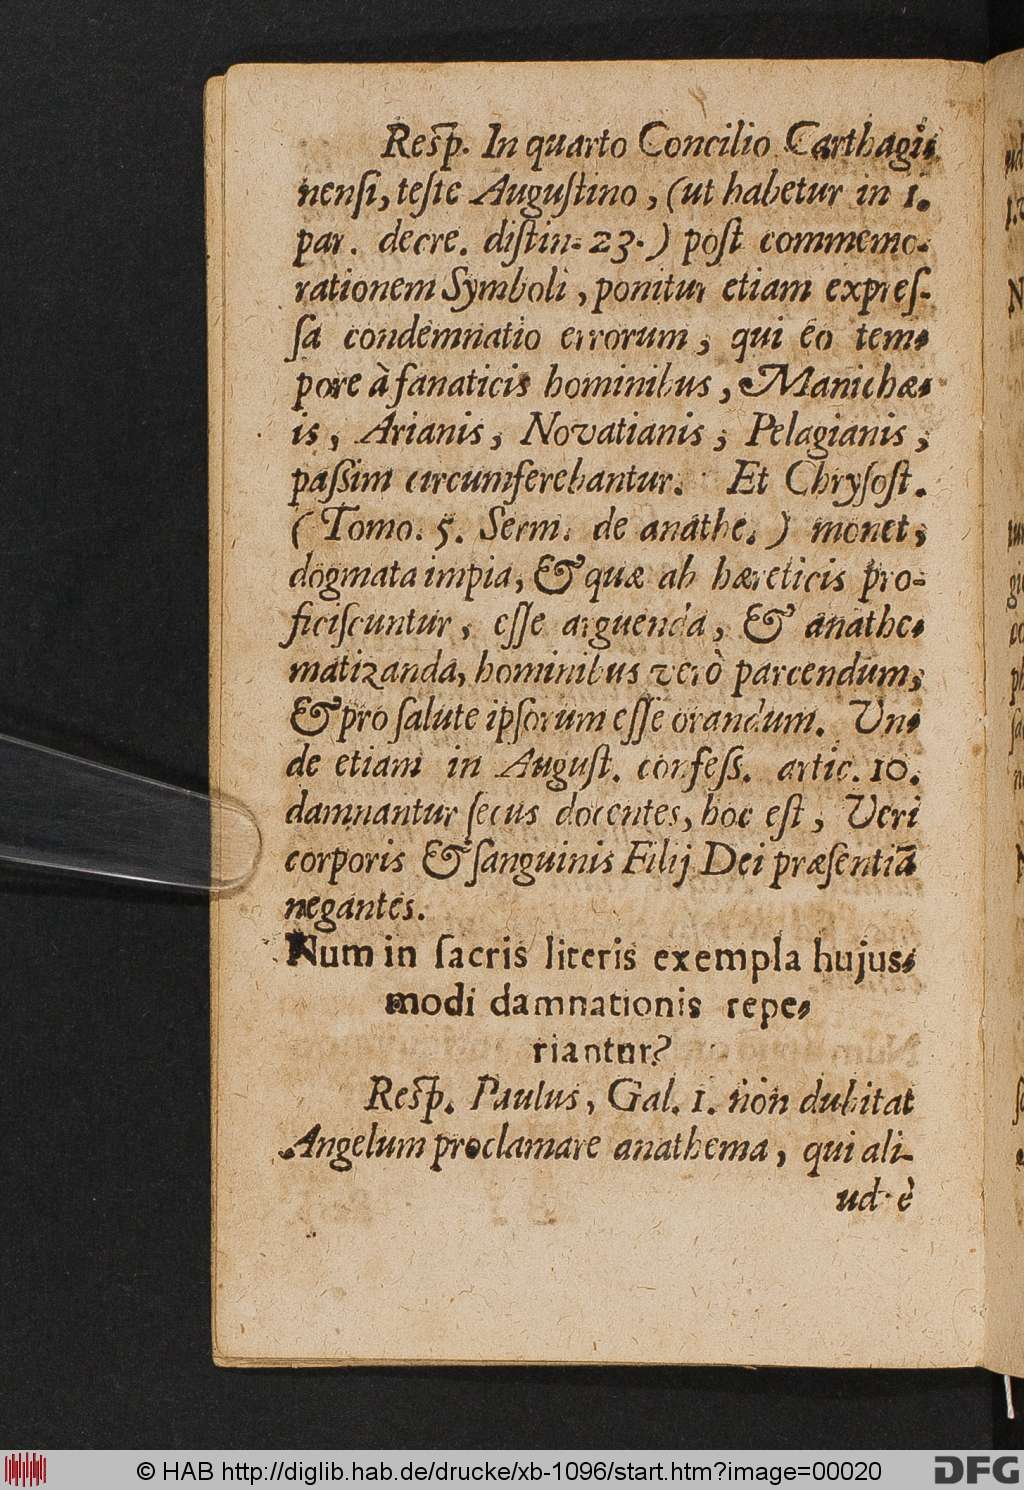 Resp. In quarto Concilio Carthagi-
nensi, teste Augustino, (ut habetur in 1.
par. decre. distin. 23.) post commemo-
rationem Symboli, ponitur etiam expres-
sa condemnatio errorum, qui eo tem-
pore à fanaticis hominibus, Manichæ-
is, Arianis, Novatianis, Pelagianis,
passim circumferebantur. Et Chrysost.
(Tomo. 5. Serm. de anathe.) monet,
dogmata impia, & quæ ab hæreticis pro-
ficiscuntur, esse arguenda, & anathe-
matizanda, hominibus verò parcendum,
& pro salute ipsorum esse orandum. Un-
de etiam in August. confess. artic. 10.
damnantur secus docentes, hoc est, Veri
corporis & sanguinis Filij Dei præsentiã
negantes.
Num in sacris literis exempla hujus-
modi damnationis repe-
riantur?
Resp. Paulus, Gal. 1. non dubitat
Angelum proclamare anathema, qui ali-
ud è
© HAB http://diglib.hab.de/drucke/xb-1096/start.htm?image=00020
DFG